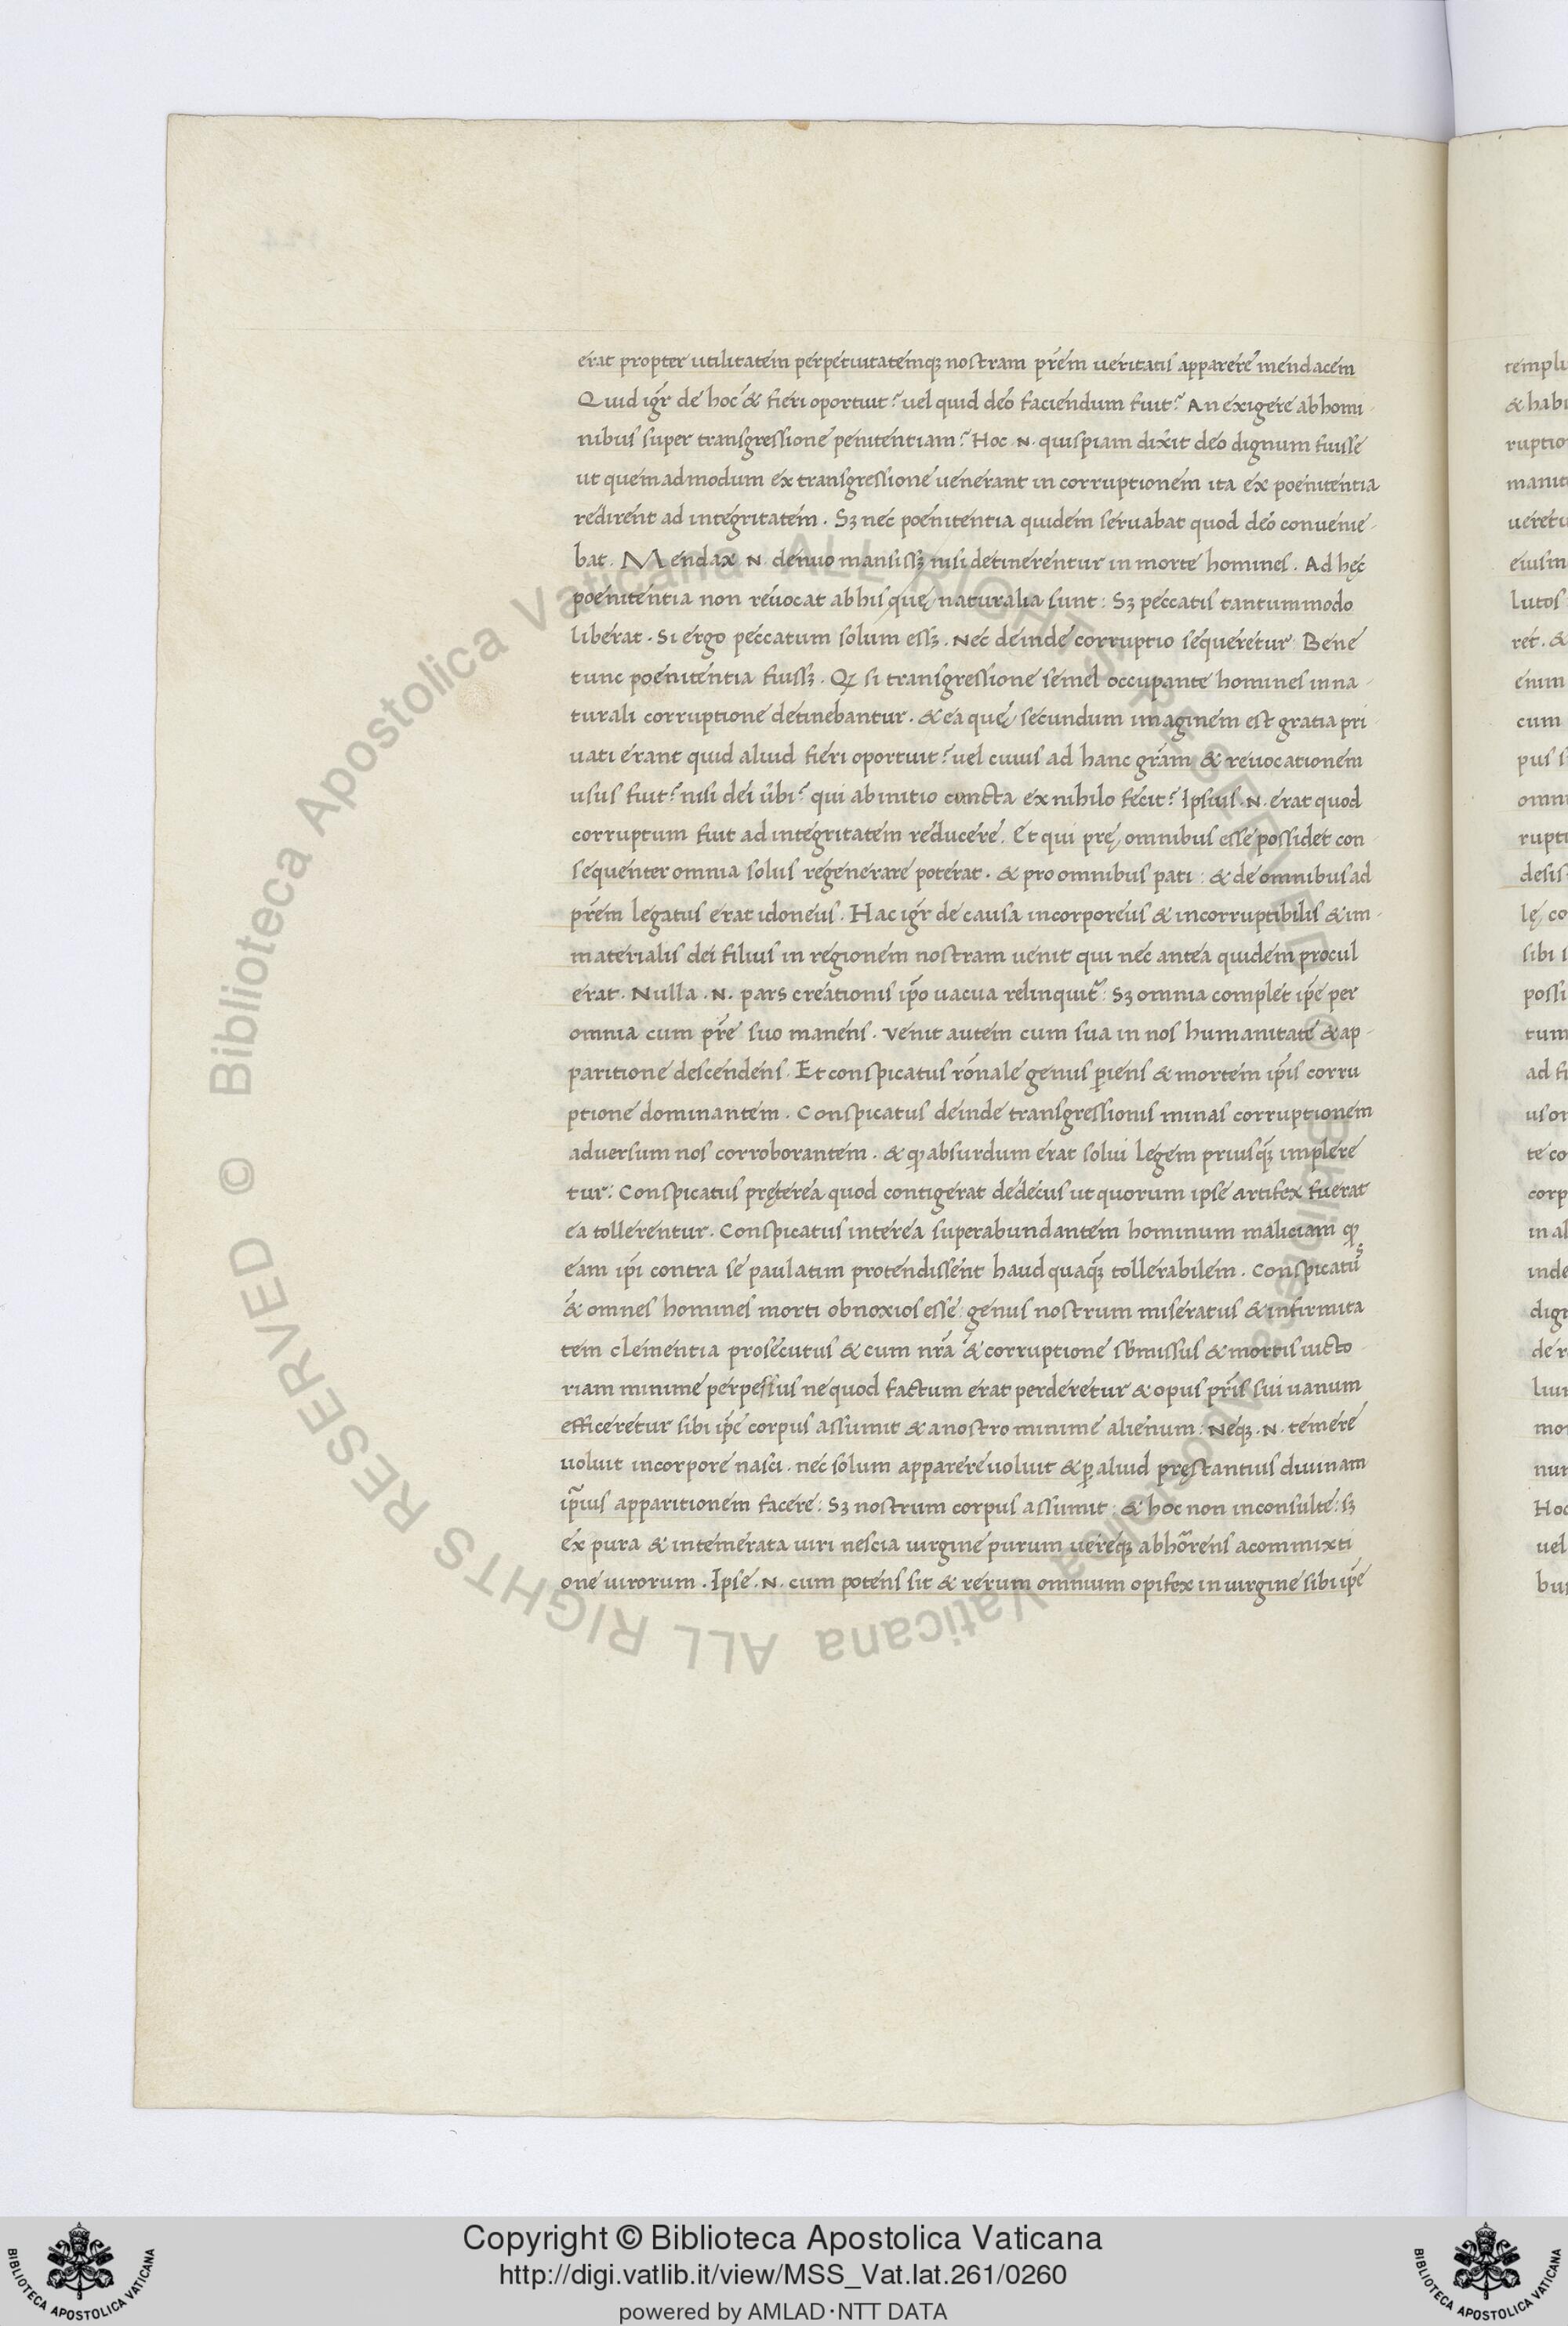 erat propter utilitatem perpetuitatemqꝫ nostram pr̃em ueritatis apparere mendacem
Quid igr̃ de hoc & fieri oportuit? uel quid deo faciendum fuit? An exigere ab homi-
nibus super transgressione penitentiam? Hoc .N. quispiam dixit deo dignum fuisse
ut quemadmodum ex transgressione uenerant in corruptionem ita ex poenitentia
redirent ad integritatem. Sꝫ nec poenitentia quidem seruabat quod deo conuenie-
bat. Mendax .N. denuo mansissꝫ nisi detinerentur in morte homines. Ad hęc
poenitentia non reuocat ab his quę naturalia sunt: Sꝫ peccatis tantummodo
liberat. Si ergo peccatum solum essꝫ. Nec deinde corruptio sequeretur: Bene
tunc poenitentia fuissꝫ. Qꝫ si transgressione semel occupante homines in na-
turali corruptione detinebantur. & ea quę secundum imaginem est gratia pri
uati erant quid aliud fieri oportuit? uel cuius ad hanc gr̃am & reuocationem
usus fuit? nisi dei ũbi? qui ab initio cuncta ex nihilo fecit? Ipsius .N. erat quod
corruptum fuit ad integritatem reducere. Et qui prę omnibus esse possidet con-
sequenter omnia solus regenerare poterat. & pro omnibus pati: & de omnibus ad
pr̃em legatus erat idoneus. Hac igr̃ de causa incorporeus & incorruptibilis & im-
materialis dei filius in regionem nostram uenit qui nec antea quidem procul
erat. Nulla .N. pars creationis ip̃o uacua relinquit̃: Sꝫ omnia complet ip̃e per
omnia cum pr̃e suo manens. Venit autem cum sua in nos humanitate & ap-
paritione descendens. Et conspicatus rõnale genus ꝑiens & mortem ip̃is corru
ptione dominantem. Conspicatus deinde transgressionis minas corruptionem
aduersum nos corroborantem. & ꝙ absurdum erat solui legem priusq̃ꝫ implere
tur: Conspicatus pręterea quod contigerat dedecus ut quorum ipse artifex fuerat
ea tollerentur. Conspicatus interea superabundantem hominum maliciam ꝙ
eam ip̃i contra se paulatim protendissent haud quaq̃ꝫ tollerabilem. Conspicatus
& omnes homines morti obnoxios esse: genus nostrum miseratus & infirmita
tem clementia prosecutus & cum nr̃a & corruptione sb̃missus & mortis uicto-
riam minime perpessus ne quod factum erat perderetur & opus pr̃is sui uanum
efficeretur sibi ip̃e corpus assumit & a nostro minime alienum: Neqꝫ .N. temere
uoluit in corpore nasci. nec solum apparere uoluit & ꝑ aliud pręstantius diuinam
ip̃ius apparitionem facere: Sꝫ nostrum corpus assumit: & hoc non inconsulte: sꝫ
ex pura & intemerata uiri nescia uirgine purum uereqꝫ abhorrens a commixti
one uirorum. Ipse .N. cum potens sit & rerum omnium opifex in uirgine sibi ip̃e
Copyright © Biblioteca Apostolica Vaticana
http://digi.vatlib.it/view/MSS_Vat.lat.261/0260
powered by AMLAD·NTT DATA
BIBLIOTECA APOSTOLICA VATICANA
BIBLIOTECA APOSTOLICA VATICANA